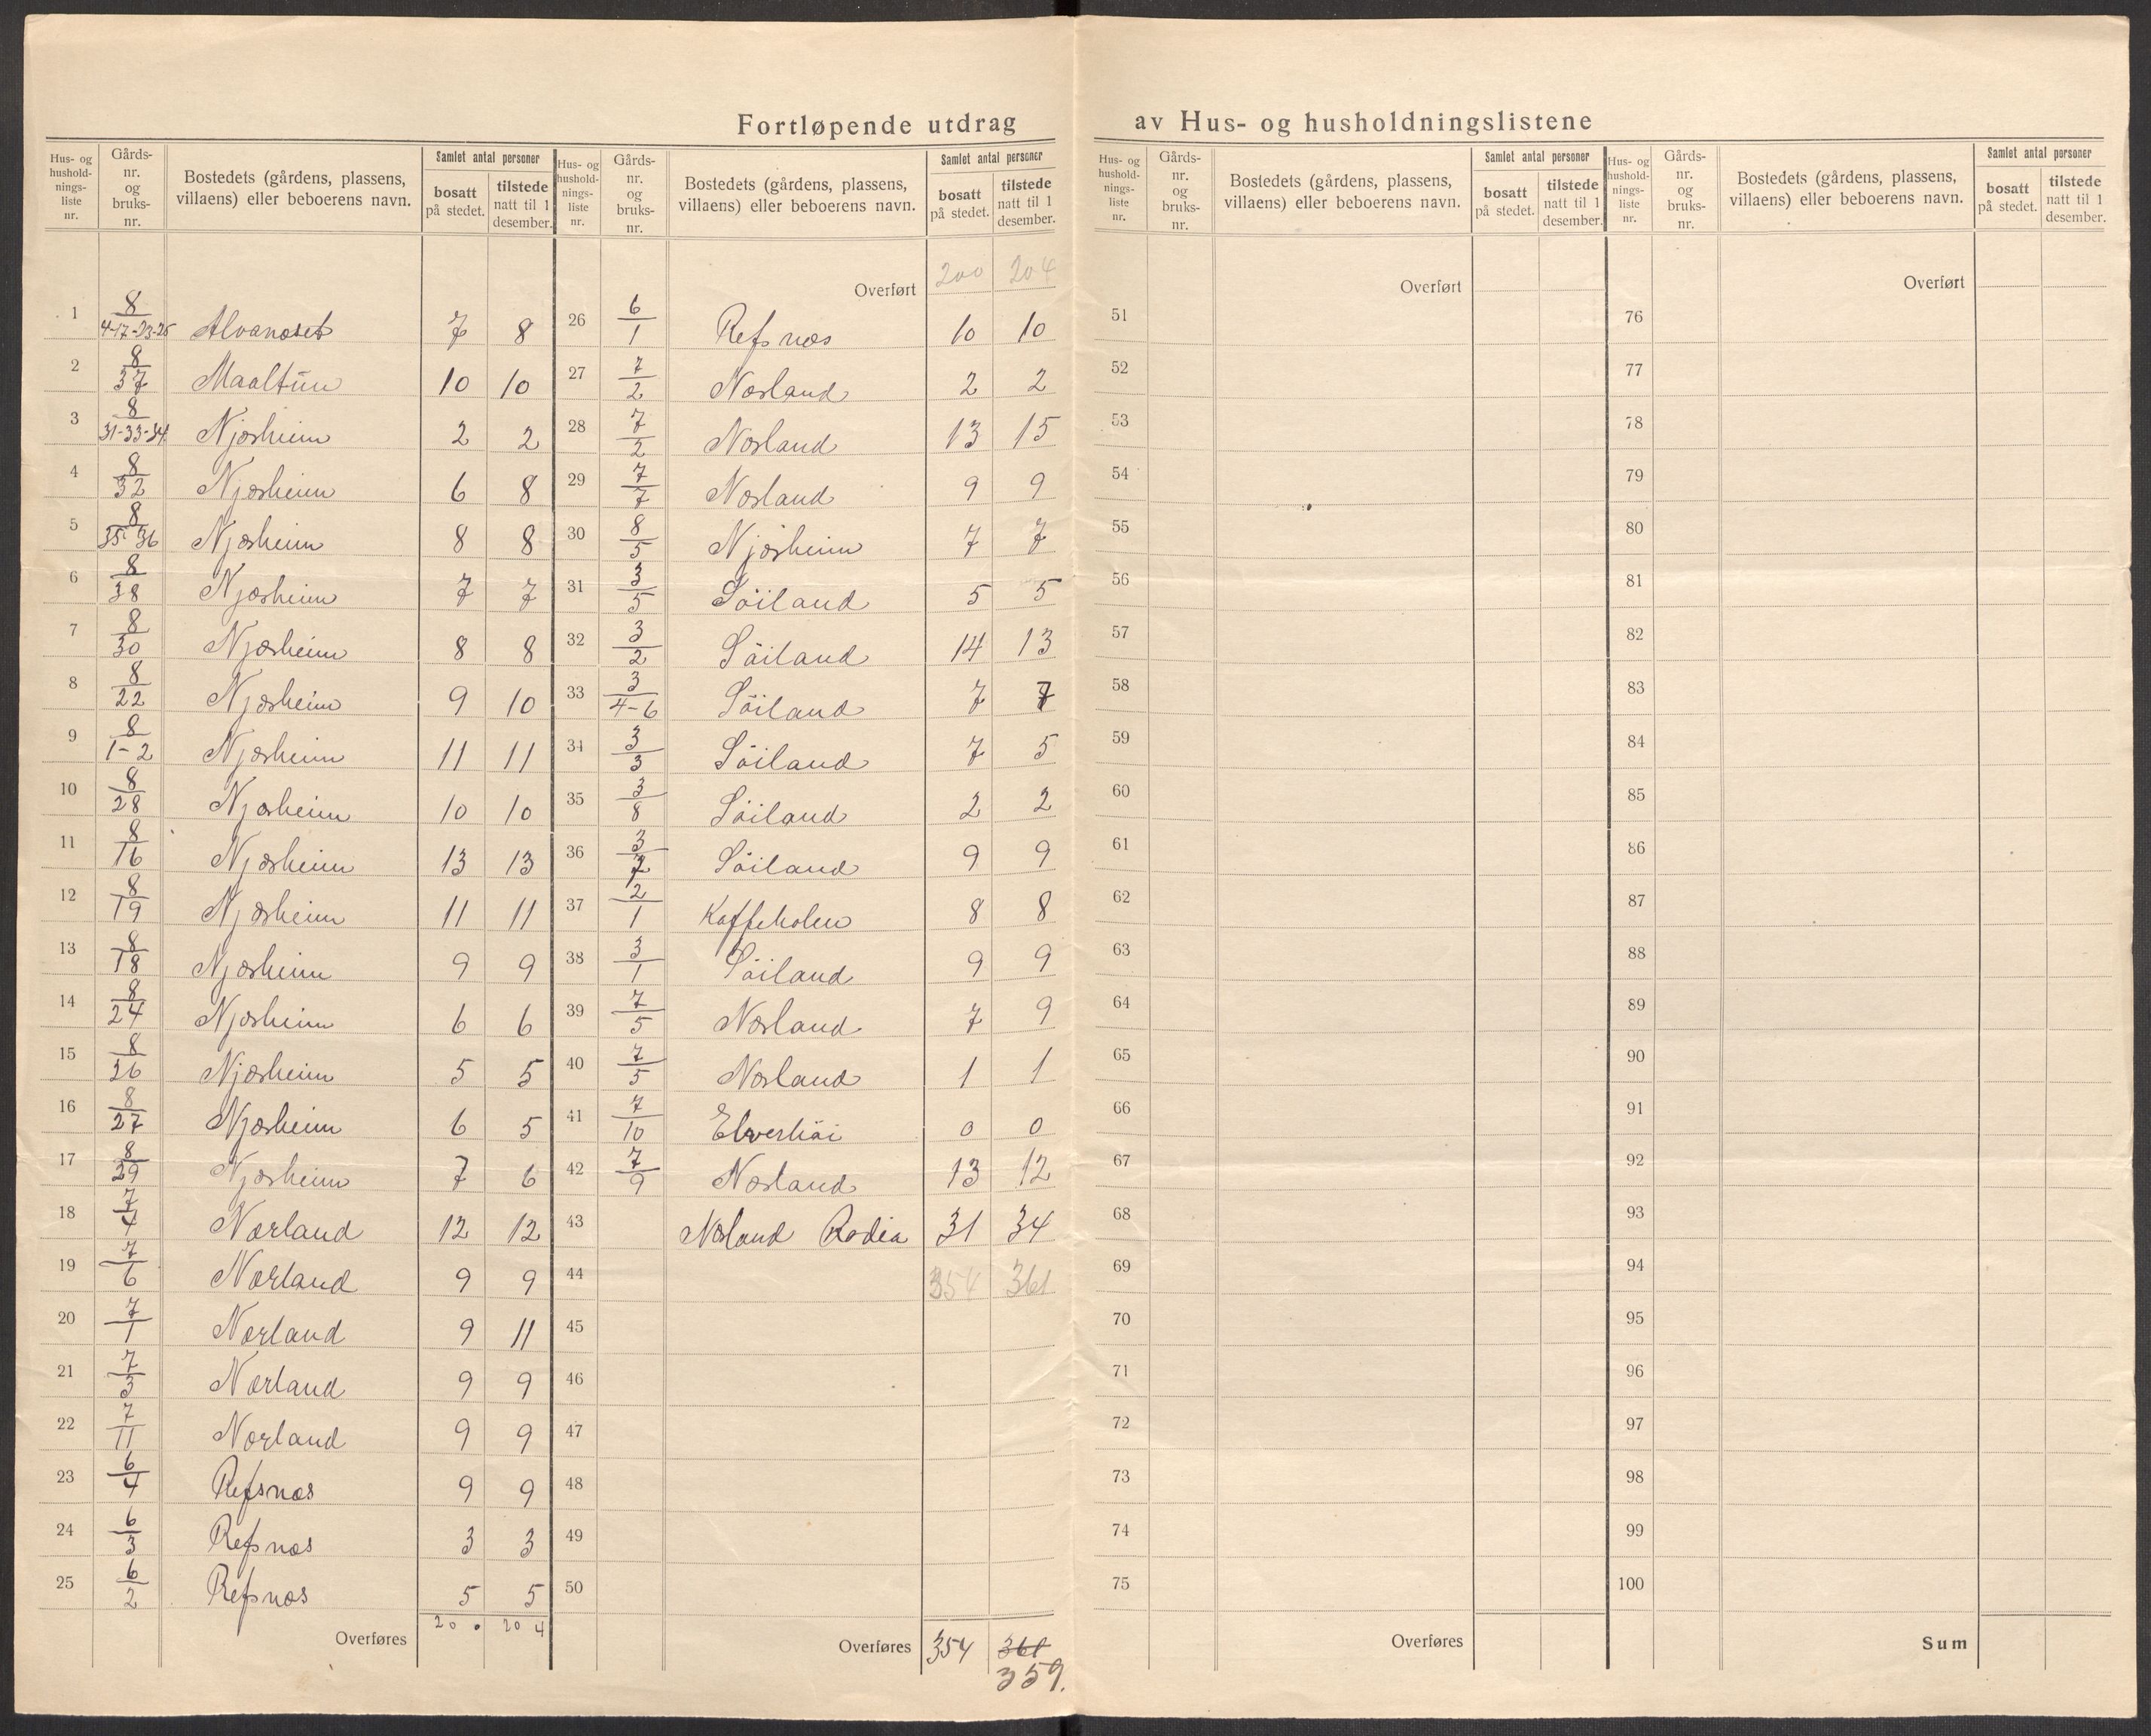 Fortløpende utdrag av Hus- og husholdningslistene
Hus- og husholdnings-liste nr. Gårds-nr. og bruks-nr. Bostedets (gårdens, plassens, villaens) eller beboerens navn. Samlet antal personer bosatt på stedet. tilstede natt til 1 desember.
1 8/4-17-23-25 Alvanoset 7 8
2 8/37 Maaltün 10 10
3 8/31-33-34 Njærheim 2 2
4 8/32 Njærheim 6 8
5 8/35-36 Njærheim 8 8
6 8/38 Njærheim 7 7
7 8/30 Njærheim 8 8
8 8/22 Njærheim 9 10
9 8/1-2 Njærheim 11 11
10 8/28 Njærheim 10 10
11 8/16 Njærheim 13 13
12 8/19 Njærheim 11 11
13 8/18 Njærheim 9 9
14 8/24 Njærheim 6 6
15 8/26 Njærheim 5 5
16 8/27 Njærheim 6 5
17 8/29 Njærheim 7 6
18 7/4 Nærland 12 12
19 7/6 Nærland 9 9
20 7/1 Nærland 9 11
21 7/3 Nærland 9 9
22 7/11 Nærland 9 9
23 6/4 Refsnæs 9 9
24 6/3 Refsnæs 3 3
25 6/2 Refsnæs 5 5
Overføres 200 204
Hus- og husholdnings-liste nr. Gårds-nr. og bruks-nr. Bostedets (gårdens, plassens, villaens) eller beboerens navn. Samlet antal personer bosatt på stedet. tilstede natt til 1 desember.
Overført 200 204
26 6/1 Refsnæs 10 10
27 7/2 Nærland 2 2
28 7/2 Nærland 13 15
29 7/7 Nærland 9 9
30 8/5 Njærheim 7 7
31 3/5 Söiland 5 5
32 3/2 Söiland 14 13
33 3/4-6 Söiland 7 7
34 3/3 Söiland 7 5
35 3/8 Söiland 2 2
36 3/7 Söiland 9 9
37 2/1 Kaffeholen 8 8
38 3/1 Söiland 9 9
39 7/5 Nærland 7 9
40 7/5 Nærland 1 1
41 7/10 Elverhöi 0 0
42 7/9 Nærland 13 12
43 Nærland Radio 31 34
44 354 361
45
46
47
48
49
50
Overføres 354 361
359.
Hus- og husholdnings-liste nr. Gårds-nr. og bruks-nr. Bostedets (gårdens, plassens, villaens) eller beboerens navn. Samlet antal personer bosatt på stedet. tilstede natt til 1 desember.
Overført
51
52
53
54
55
56
57
58
59
60
61
62
63
64
65
66
67
68
69
70
71
72
73
74
75
Overføres
Hus- og husholdnings-liste nr. Gårds-nr. og bruks-nr. Bostedets (gårdens, plassens, villaens) eller beboerens navn. Samlet antal personer bosatt på stedet. tilstede natt til 1 desember.
Overført
76
77
78
79
80
81
82
83
84
85
86
87
88
89
90
91
92
93
94
95
96
97
98
99
100
Sum